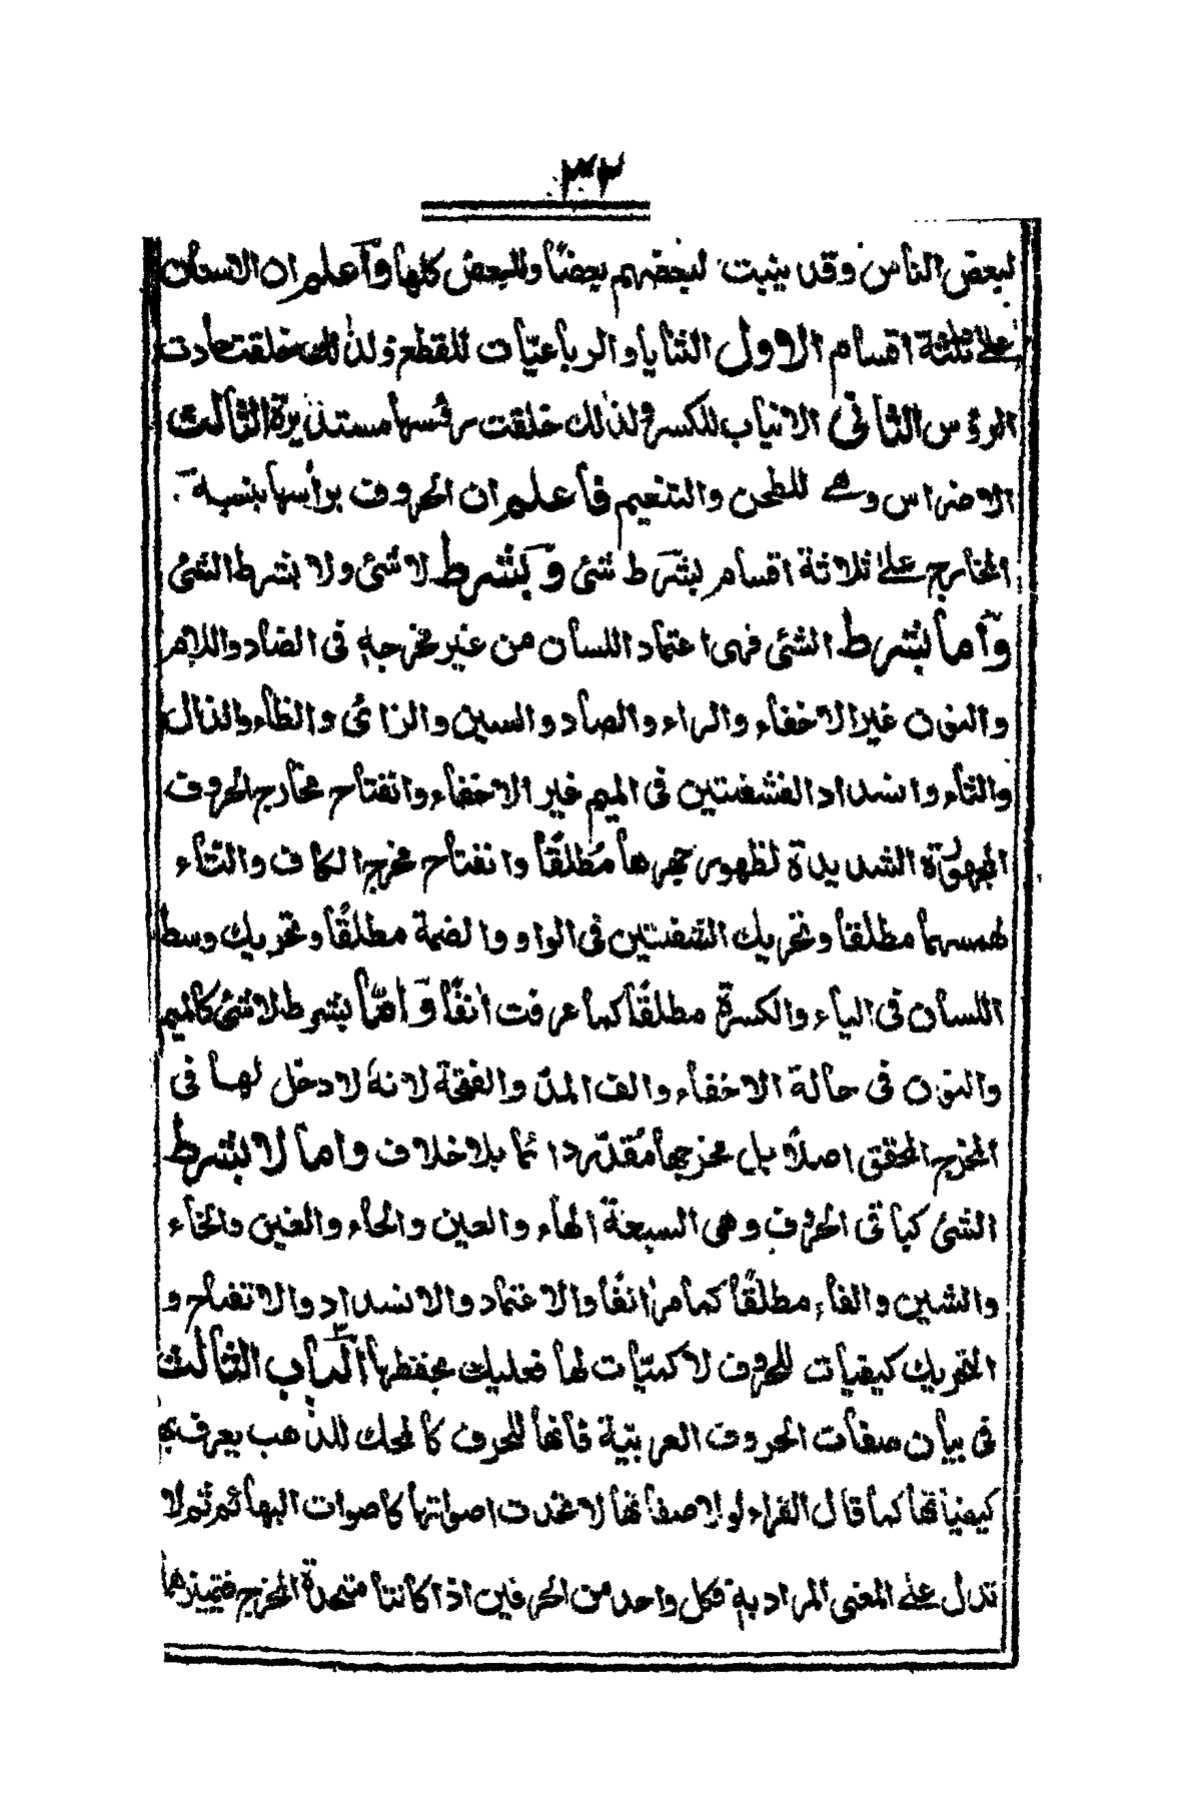 ٣٢
لبعض الناس وقد ينبت لبعضهم بعضاً وللبعض كلها وآعلم ان الاسنان
على ثلثة اقسام الاول الثنايا والرباعيّات للقطع ولذٰلك خلقت حادت
الرؤس الثانى الانياب للكسر ولذٰلك خلقت رؤسها مستديرة الثالث
الاضراس وهى للطحن والتنعيم فأعلم ان الحروف برأسها بنسبة
المخارج على ثلاثة اقسام بشرط شئ وبشرط لا شئ ولا بشرط الشئ
وآما بشرط الشئ فهى اعتماد اللسان من غير مخرجه فى الضاد واللام
والنون غير الاخفاء والراء والصاد والسين والزائ والظاء والذال
والثاء وانسداد الشفتين فى الميم غير الاخفاء وانفتاح مخارج الحروف
المجهورة الشديدة لظهور جهرها مطلقًا وانفتاح مخرج الكاف والتاء
لهمسهما مطلقا وتحريك الشفتين فى الواو والضمة مطلقًا وتحريك وسط
اللسان فى الياء والكسرة مطلقًا كما عرفت انفًا وآمّا بشرط لا شئ كالميم
والنون فى حالة الاخفاء والف المدّ والفتحة لانهٗ لا دخل لها فى
المخرج المحقق اصلاً بل مخرجها مُقدّر دائما بلا خلاف واما لا بشرط
الشئ كباقى الحروف وهى السبعة الهاء والعين والحاء والغين والخاء
والشين والفاء مطلقًا كما مرّ انفًا والاعتماد والانسداد والانفتاح و
التحريك كيفيات للحروف لا كميّات لها فعليك بحفظها الباب الثالث
فى بيان صفات الحروف العربيّة فانها للحروف كالمحك للذهب يعرف بها
كيفياتها كما قال القراء لولا صفاتها لاتحدت اصواتها كاصوات البهائم ثم لا
تدل على المعنى المراد به فكل واحد من الحرفين اذا كانتا متحدة المخرج فتميزها